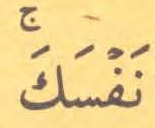 نَفْسَكَ ۚ